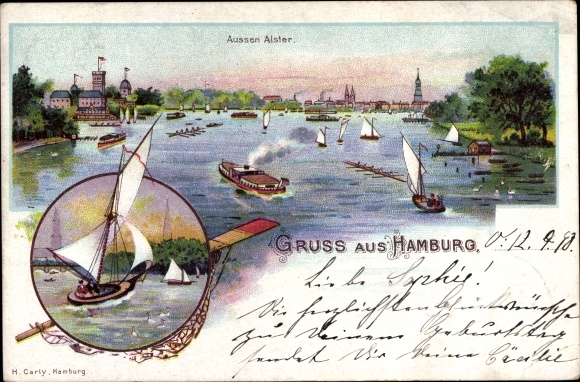 Aussen Alster.
GRUSS AUS HAMBURG, 12.9.98.
Liebe Sophie!
Die herzlichsten Glückwünsche
zu Deinem Geburtstag
sendet Dir Deine Cäcilie
H. Carly, Hamburg.